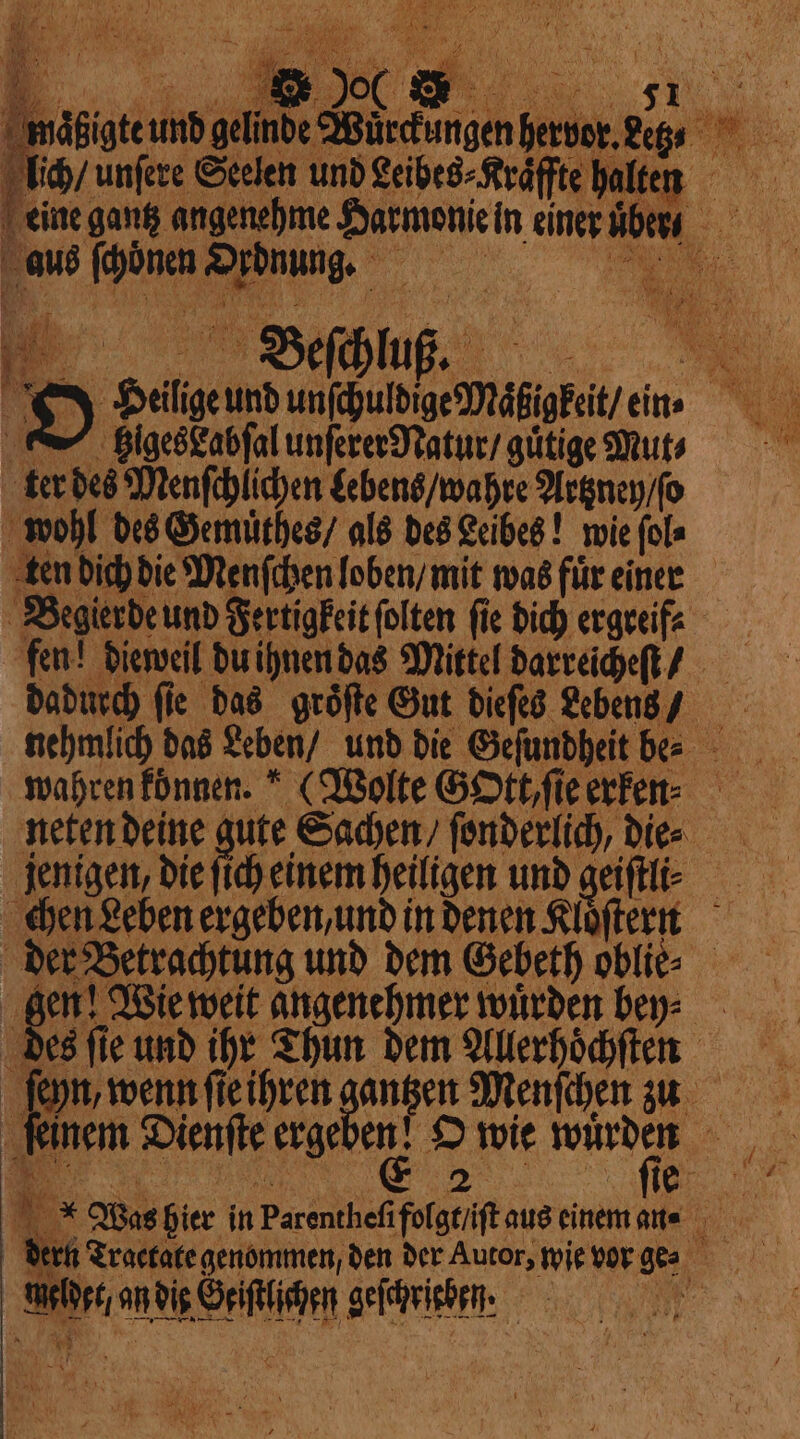 )o( 51
maͤßigte und gelinde Wuͤrckungen hervor. Letz⸗
lich/ unſere Seelen und Leibes⸗Kraͤffte halten
eine gantz angenehme Harmonie in einer uͤber⸗
aus ſchoͤnen Ordnung.
Beſchluß.
O Heilige und unſchuldige Maͤßigkeit/ ein⸗
tziges Labſal unſerer Natur/ guͤtige Mut⸗
ter des Menſchlichen Lebens/wahre Artzney/ſo
wohl des Gemuͤthes/ als des Leibes! wie ſol⸗
ten dich die Menſchen loben/mit was fuͤr einer
Begierde und Fertigkeit ſolten ſie dich ergreif⸗
fen! dieweil du ihnen das Mittel darreicheſt/
dadurch ſie das groͤſte Gut dieſes Lebens/
nehmlich das Leben/ und die Geſundheit be⸗
wahren koͤnnen. * (Wolte GOtt, ſie erken⸗
neten deine gute Sachen/ ſonderlich, die⸗
jenigen, die ſich einem heiligen und geiſtli⸗
chen Leben ergeben, und in denen Kloͤſtern
der Betrachtung und dem Gebeth oblie⸗
gen! Wie weit angenehmer wuͤrden bey⸗
des ſie und ihr Thun dem Allerhoͤchſten
ſeyn, wenn ſie ihren gantzen Menſchen zu
ſeinem Dienſte ergeben! O wie wuͤrden
E 2 ſie
* Was hier in Parentheſi folgt/iſt aus einem an⸗
dern Tractate genommen, den der Autor, wie vor ge⸗
meldet, an die Geiſtlichen geſchrieben.